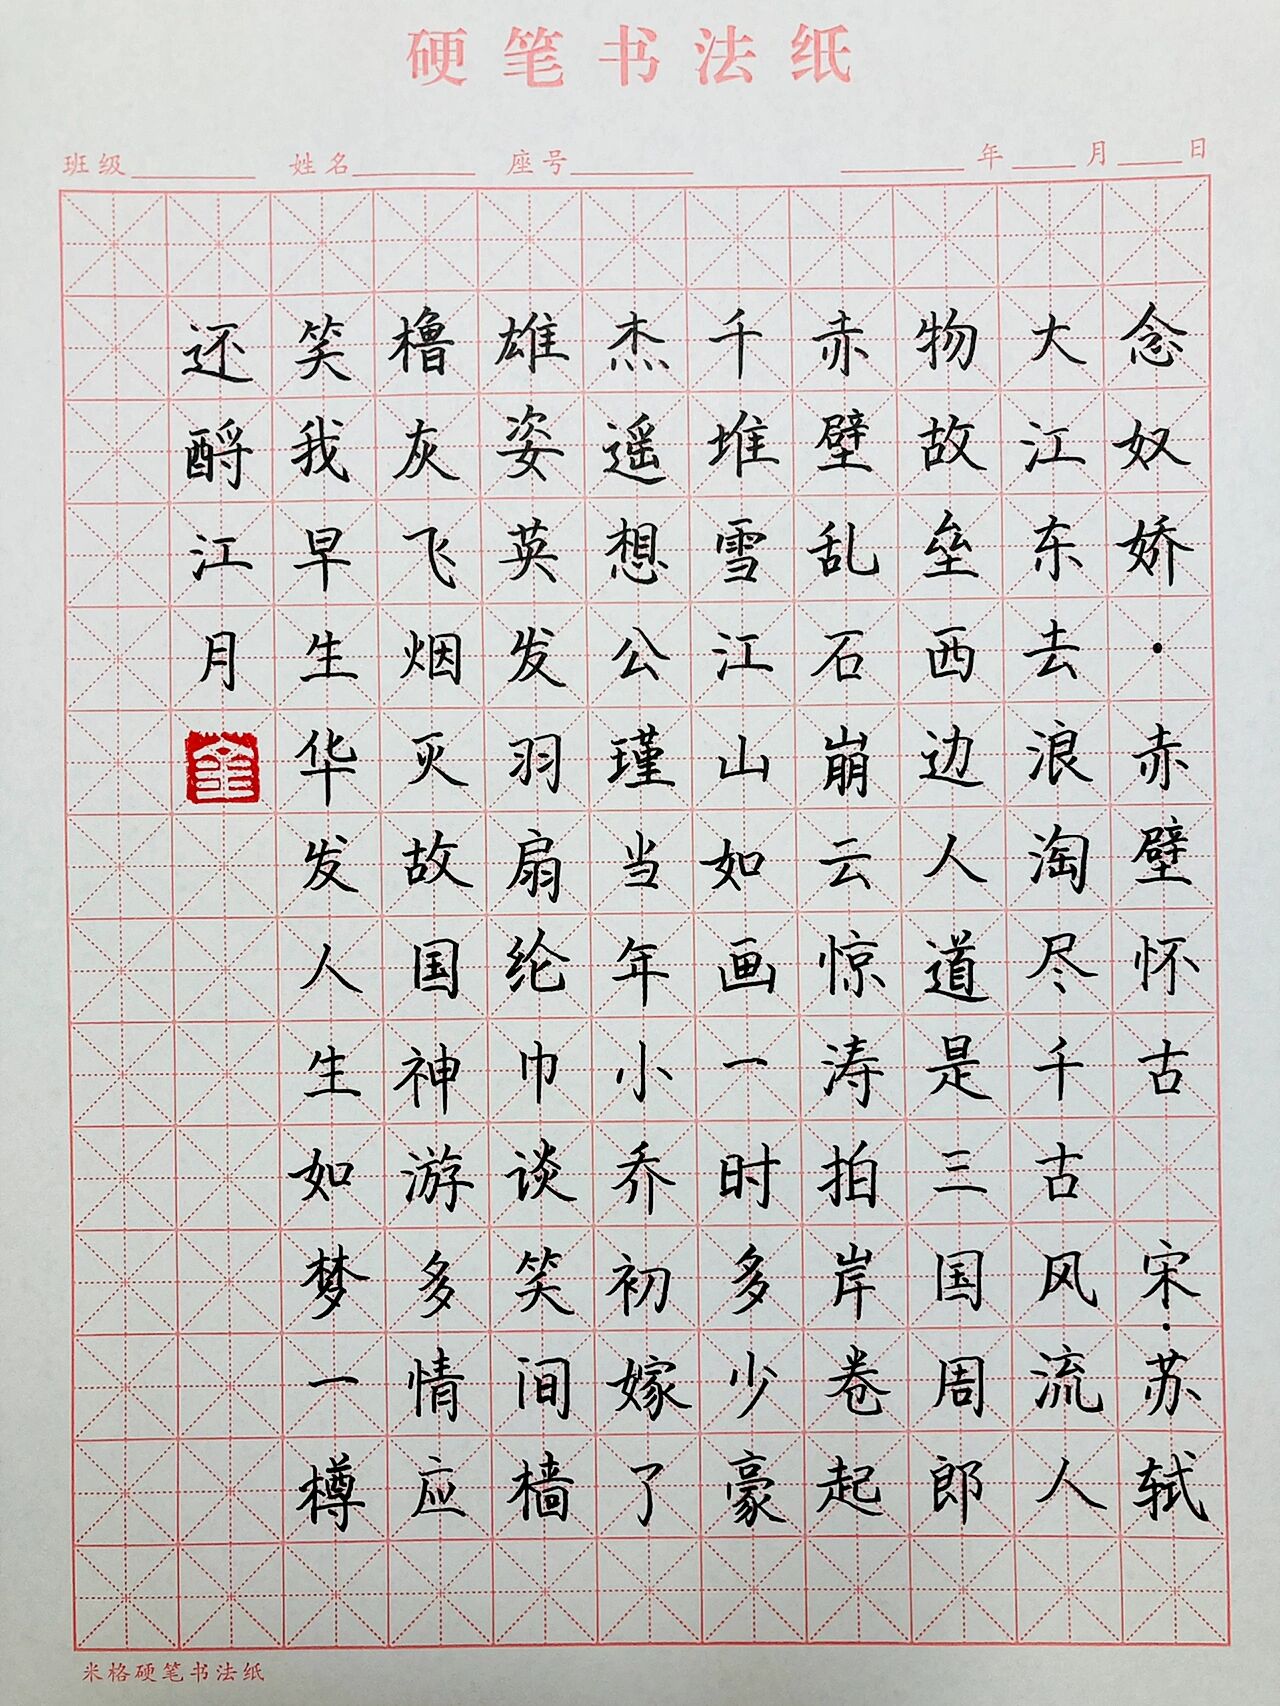 硬笔书法纸
班级 姓名 座号 年 月 日
念奴娇·赤壁怀古 宋·苏轼
大江东去浪淘尽千古风流人
物故垒西边人道是三国周郎
赤壁乱石崩云惊涛拍岸卷起
千堆雪江山如画一时多少豪
杰遥想公瑾当年小乔初嫁了
雄姿英发羽扇纶巾谈笑间樯
橹灰飞烟灭故国神游多情应
笑我早生华发人生如梦一樽
还酹江月
米格硬笔书法纸